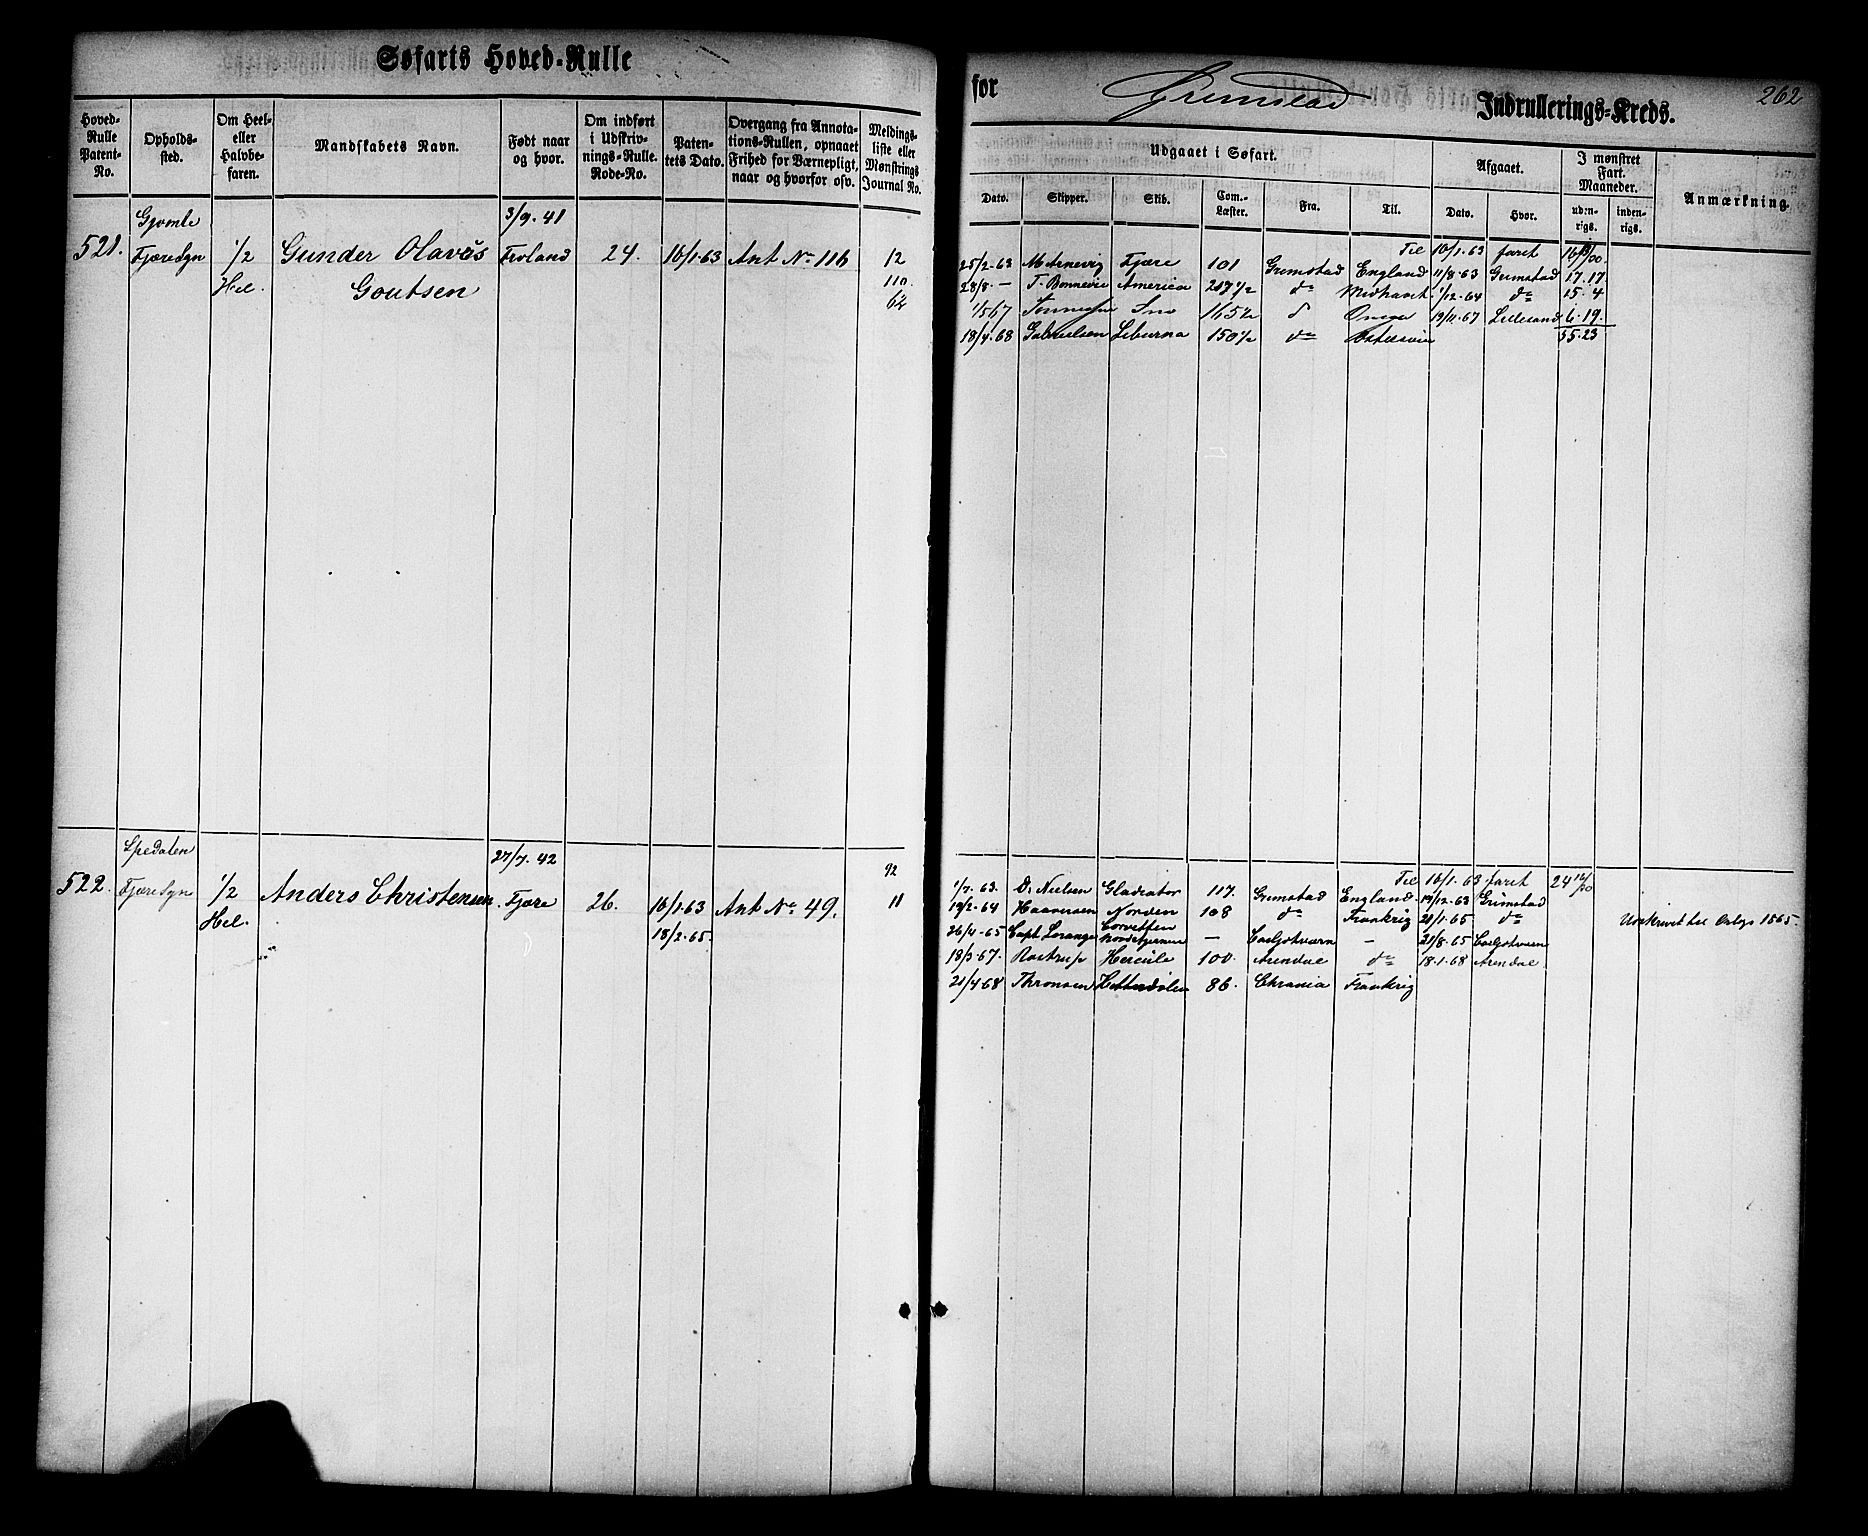 Søfarts Hoved-Rulle
Hoved-Rulle Patent-No.
Opholds-sted.
Om Heel- eller Halvbe-faren.
Mandskabets Navn.
Født naar og hvor.
Om indført i Udskriv-nings-Rulle. Rode-No.
Paten-tets Dato.
Overgang fra Annota-tions-Rullen, opnaaet Frihed for Værnepligt, naar og hvorfor osv.
Meldings-liste eller Mønstrings Journal No.
Gjømle 3/9. 41
521. Fjære Sgn 1/2 Gunder Olavės Froland 24. 16/1.63 Ant No 116 12
Hel. Goutsen 110.
62
Spedalen 27/7. 42 92
522. Fjære Sgn 1/2 Anders Christensen. Fjære 26. 16/1.63 Ant No 49. 11
Hel. 18/2.65.
for Grimstad Indrullerings-Kreds. 262
Udgaaet i Søfart.
Afgaaet.
I mønstret Fart. Maaneder.
Anmærkning
Dato. Skipper. Skib. Com.-Læster. Fra. Til. Dato. Hvor. uden-rigs. inden-rigs.
Til 16/1.63 faret
25/2.63 Fjære 101 Grimstad England 11/8.63 Grimstad 17.17
28/8.— T. Bonnevie America 217 1/2 do Midhavet 1/12.64 do 15.4
1/5 67 165 1/2 Onega 19/11.67 Lillesand 6.19.
18/4.68 Gabrielsen Liburna 150 1/2 do 55.23
Til 16/1.63 faret 24
1/7.63. D. Nielsen Gladiator 117. Grimstad England. 19/12.63 Grimstad
19/2.64 Haaversen Norden 108 do Frankrig 21/1.65 do
26/4.65 Capt. Corvetten Nordstjernen — Carljohsværn — 21/8.65 Udskrevet til Orlogs 1865.
18/3.67. Rostrup Hercule 100. Arendal do 18.1.68 Arendal
21/4 68 Thronsen 86. Chrania Frankrig